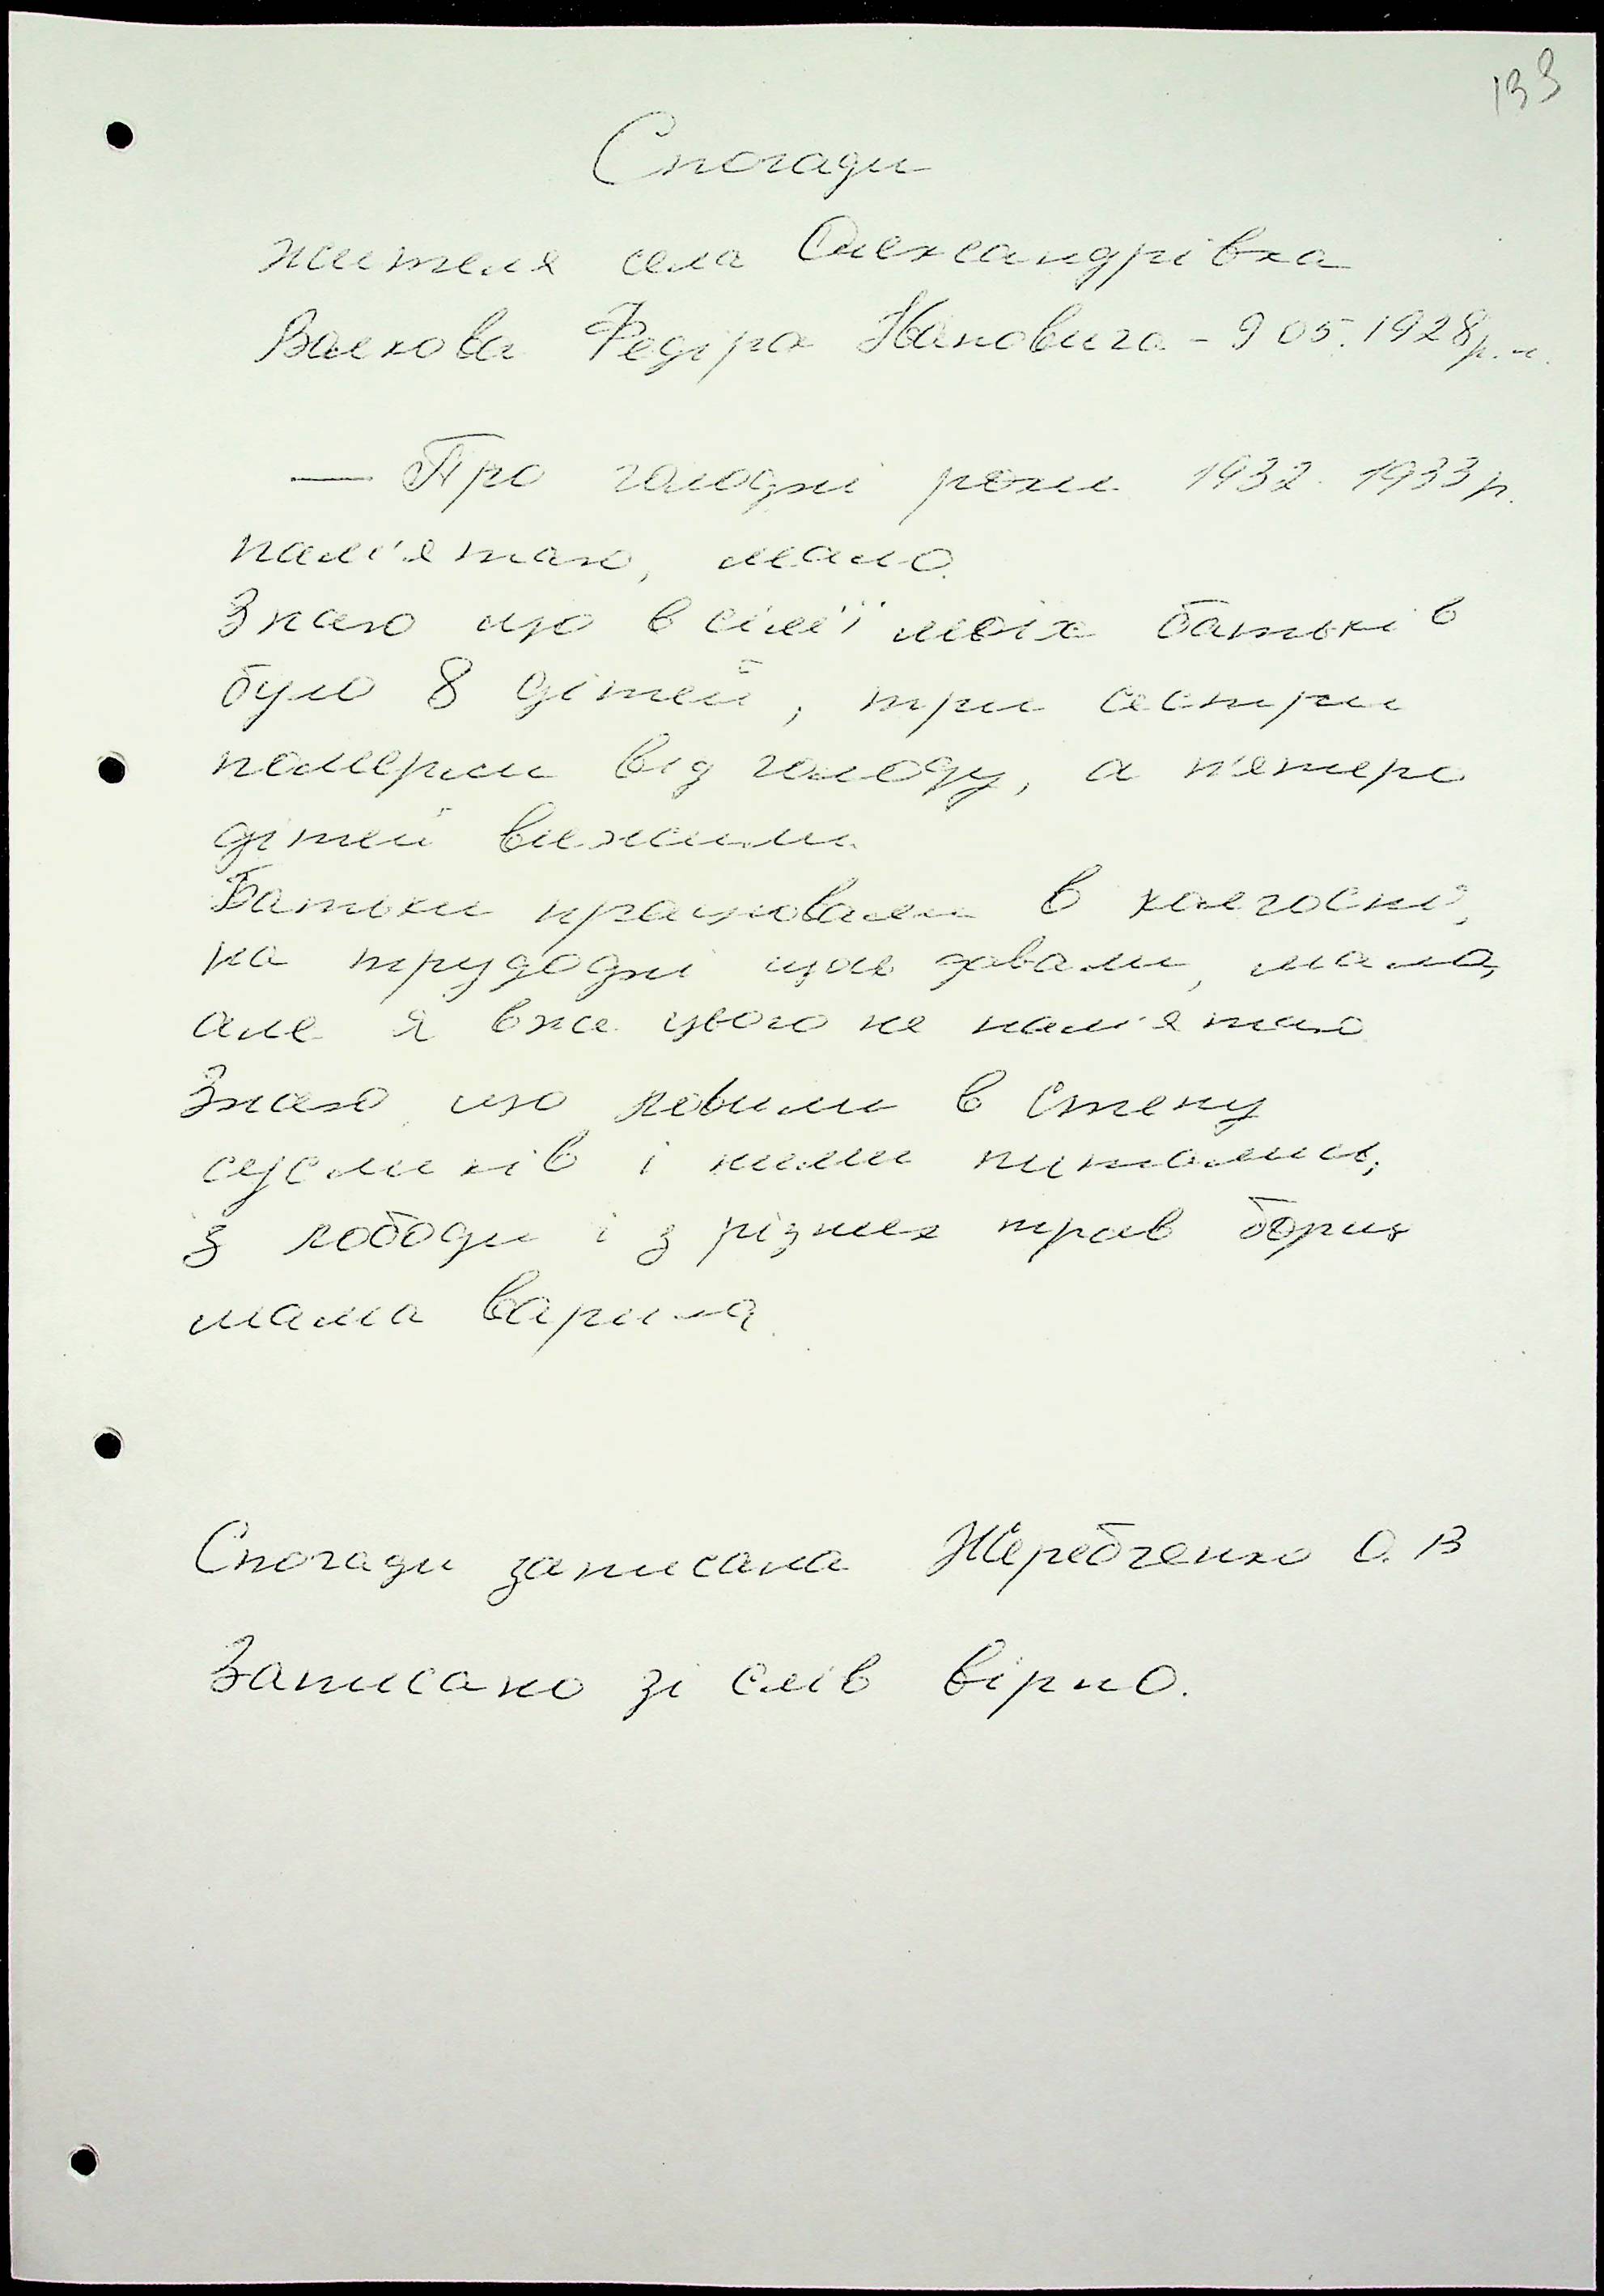 133
Спогади
жителя села Олександрівка
Валкова Федіра Івановича - 9 05. 1928 р. н.
— Про голодні роки 1932 - 1933 р.
пам'ятаю, мало.
Знаю що в сім'ї моїх батьків
було 8 дітей, три сестри
померли від голоду, а п'ятеро
дітей вижили.
Батьки працювали в колгоспі,
на трудодні щось давали, мало,
але я вже цього не пам'ятаю
Знаю що ловили в степу
сусликів і ними питались,
з лободи і з різних трав борщ
мама варила.
Спогади записала Жеребченко О. В
Записано зі слів вірно.